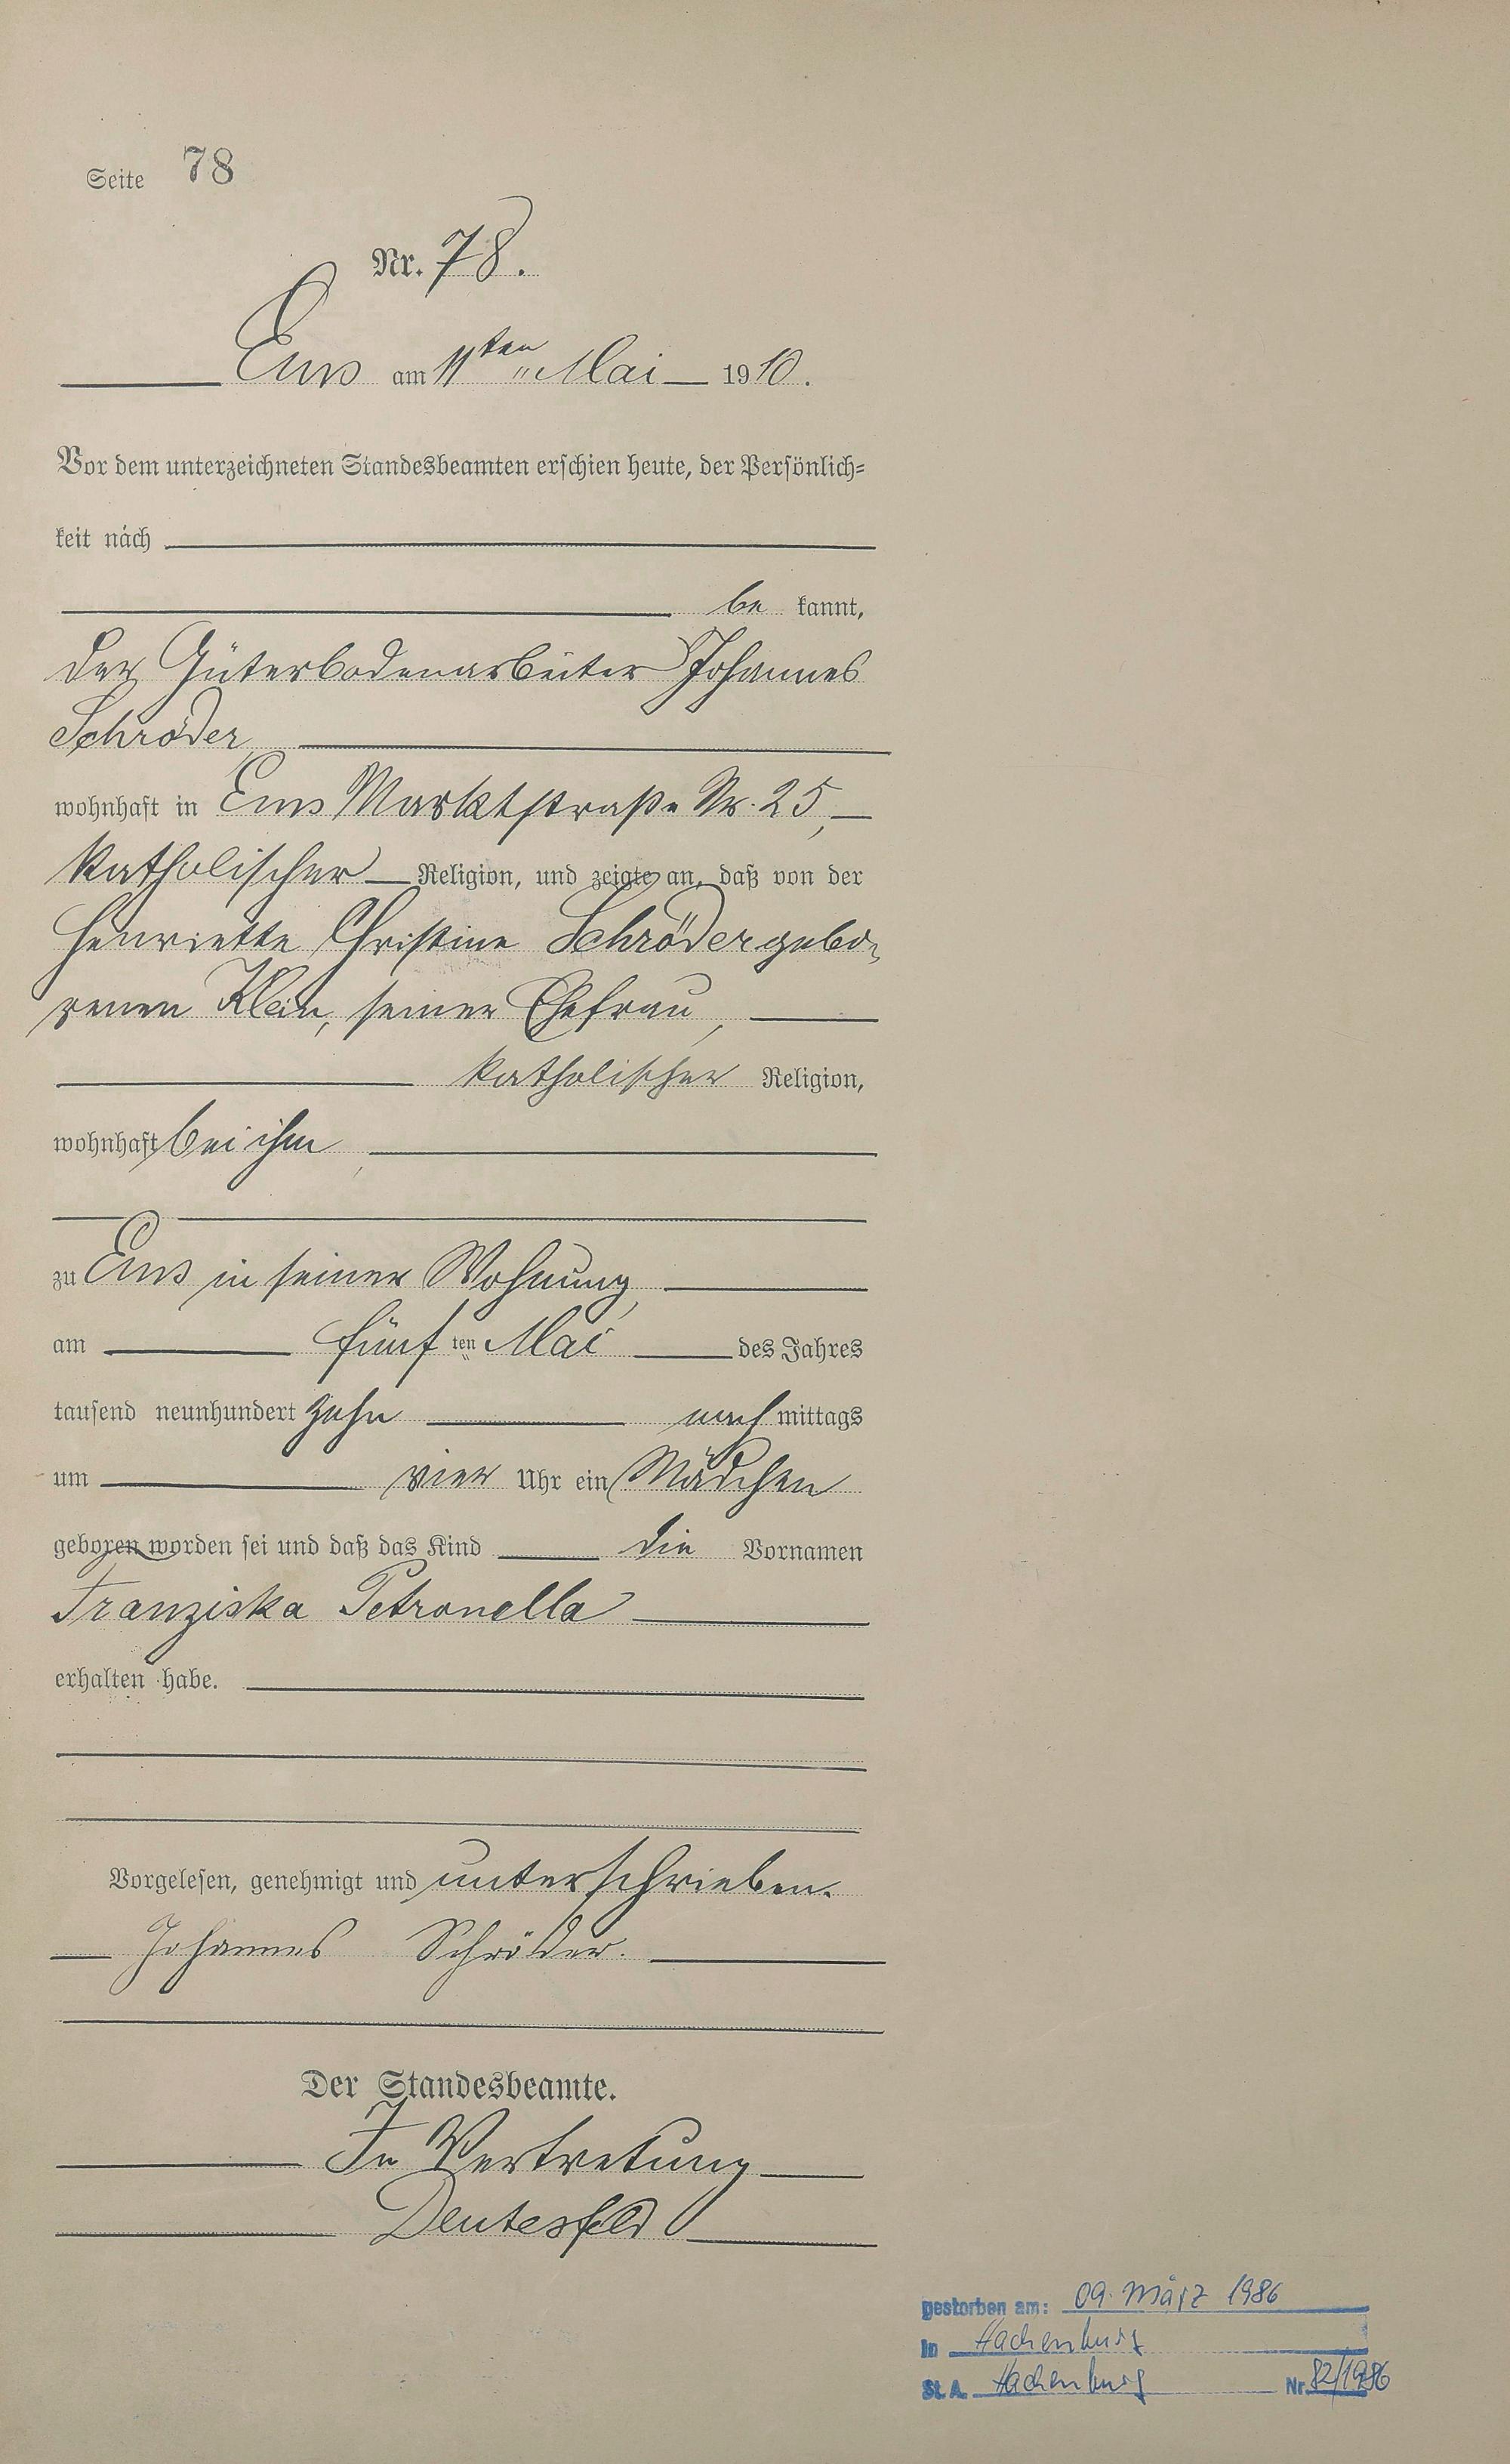 Seite 78
Nr. 78.
Ems am 11ten Mai 1910.
Vor dem unterzeichneten Standesbeamten erschien heute, der Persönlich=
keit nach
be kannt,
der Güterbodenarbeiter Johannes
Schröder,
wohnhaft in Ems Marktstraße Nr. 25,
katholischer Religion, und zeigte an, daß von der
Henriette Christine Schröder gebo-
renen Klein, seiner Ehefrau,
katholischer Religion,
wohnhaft bei ihm,
zu Ems in seiner Wohnung,
am fünf ten Mai des Jahres
tausend neunhundert zehn nach mittags
um vier Uhr ein Mädchen
geboren worden sei und daß das Kind die Vornamen
Franziska Petronella
erhalten habe.
Vorgelesen, genehmigt und unterschrieben.
Johannes Schröder.
Der Standesbeamte.
In Vertretung
Deutesfeld
gestorben am: 09. März 1986
in Hachenburg
St. A. Hachenburg Nr. 82/1986